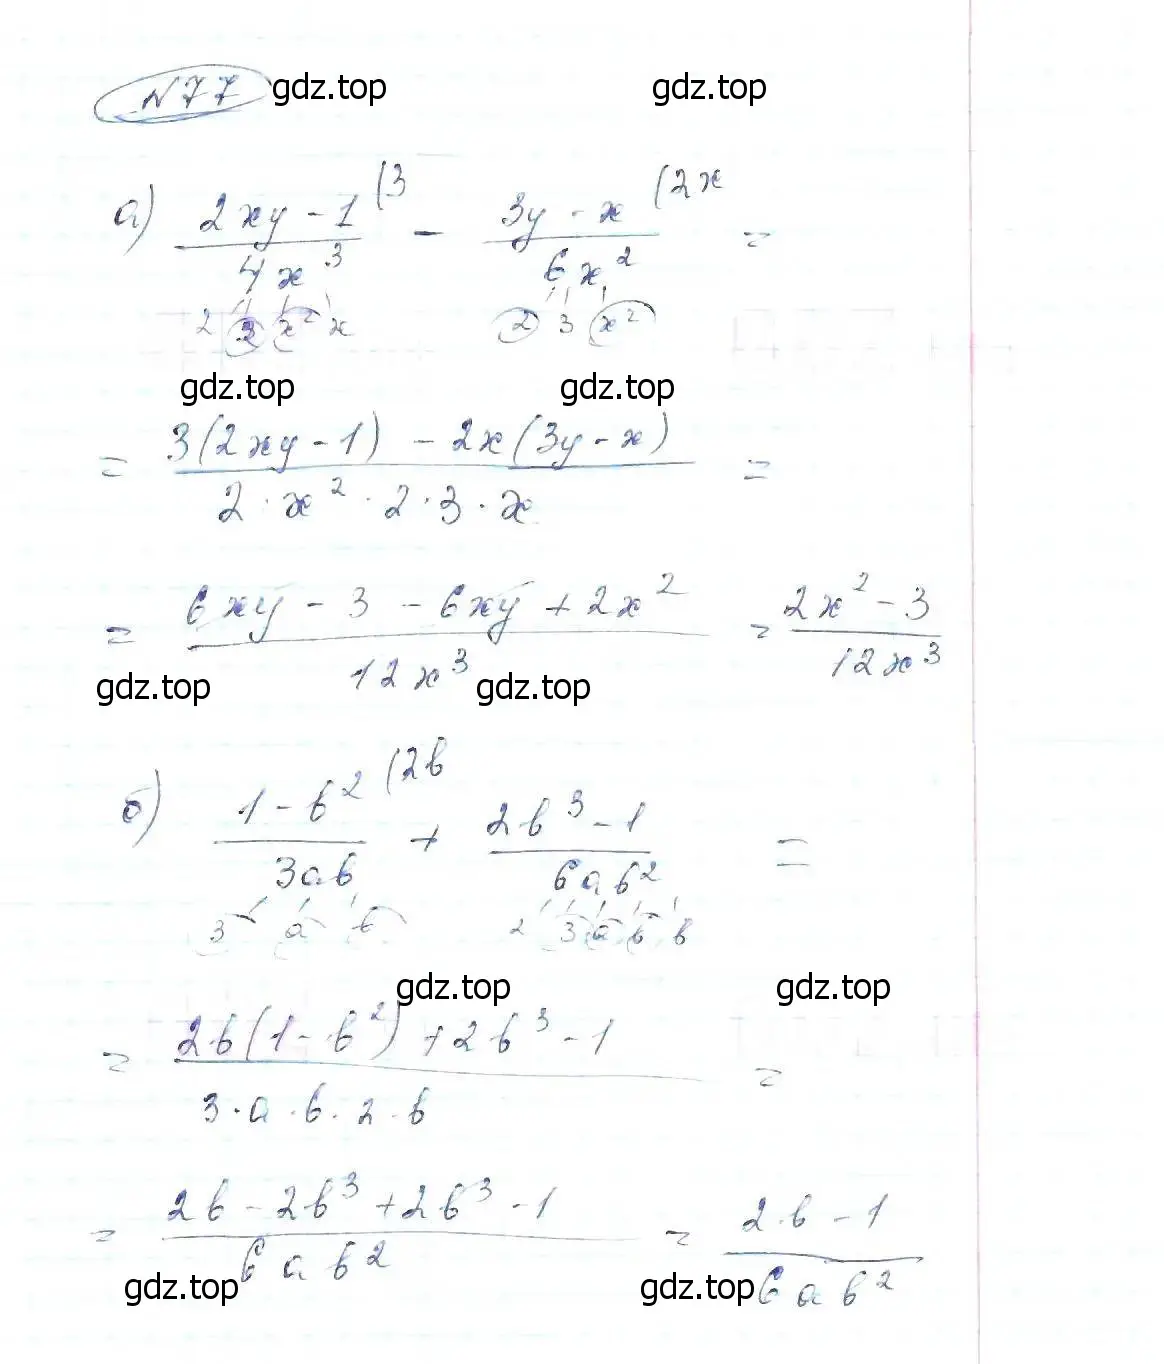 №77 gdz.top gdz.top
а) (2xy - 1)/(4x³) (3 - (3y - x)/(6x²) (2x =
2 2 x² x 2 3 x²
gdz.top gdz.top
= (3(2xy - 1) - 2x(3y - x))/(2 · x² · 2 · 3 · x) =
= (6xy - 3 - 6xy + 2x²)/(12x³) = (2x² - 3)/(12x³)
gdz.top gdz.top
б) (1 - b²)/(3ab) (2b + (2b³ - 1)/(6ab²) =
3 a b 2 3 a b b
gdz.top gdz.top
= (2b(1 - b²) + 2b³ - 1)/(3 · a · b · 2 · b) =
= (2b - 2b³ + 2b³ - 1)/(6ab²) = (2·b - 1)/(6ab²)
gdz.top gdz.top